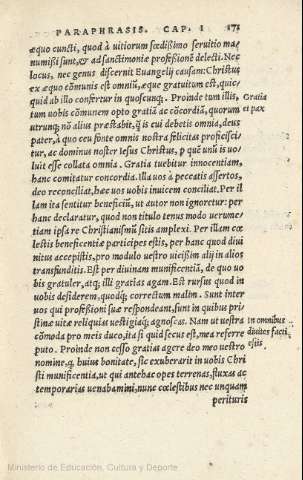 PARAPHRASIS. CAP. I 171
æquo cuncti, quod à uitiorum fœdißimo seruitio ma
numißi sunt, & ad sanctimoniæ profeßionē delecti. Nec
locus, nec genus discernit Euangelij causam: Christus
ex æquo cōmunis est omniū, æque gratuitum est, quic
quid ab illo confertur in quoscunq;. Proinde tum illis, Gratia
tum uobis cōmunem opto gratiā ac cōcordiā, quorum et pax
utrunq; nō alius præstabit, q̄ is cui debetis omnia, deus
pater, à quo ceu fonte omnis nostra felicitas proficisci
tur, ac dominus noster Iesus Christus, p quē unū is uo
luit esse collata omnia. Gratia tuebitur innocentiam,
hanc comitatur concordia. Illa uos à peccatis assertos,
deo reconciliat, hac uos uobis inuicem conciliat. Per il
lam ita sentitur beneficiū, ut autor non ignoretur: per
hanc declaratur, quod non titulo tenus modo uerume-
tiam ipsa re Christianismū sitis amplexi. Per illam cœ
lestis beneficentiæ participes estis, per hanc quod diui
nitus accepistis, pro modulo uestro uicißim alij in alios
transfunditis. Est per diuinam munificentiā, de quo uo
bis gratuler, atq; illi gratias agam. Est rursus quod in
uobis desiderem, quodq; correctum malim. Sunt inter
uos qui profeßioni suæ respondeant, sunt in quibus pri
stinæ uitæ reliquias uestigiaq; agnoscas. Nam ut uestra in omnibus
cōmoda pro meis duco, ita si quid secus est, mea referre diuites facti
puto. Proinde non cesso gratias agere deo meo uestro estis
nomine, q huius bonitate, sic exuberarit in uobis Chri
sti munificentia, ut qui antehac opes terrenas, fluxas ac
temporarias uenabamini, nunc cœlestibus nec unquam
perituris
Ministerio de Educación, Cultura y Deporte